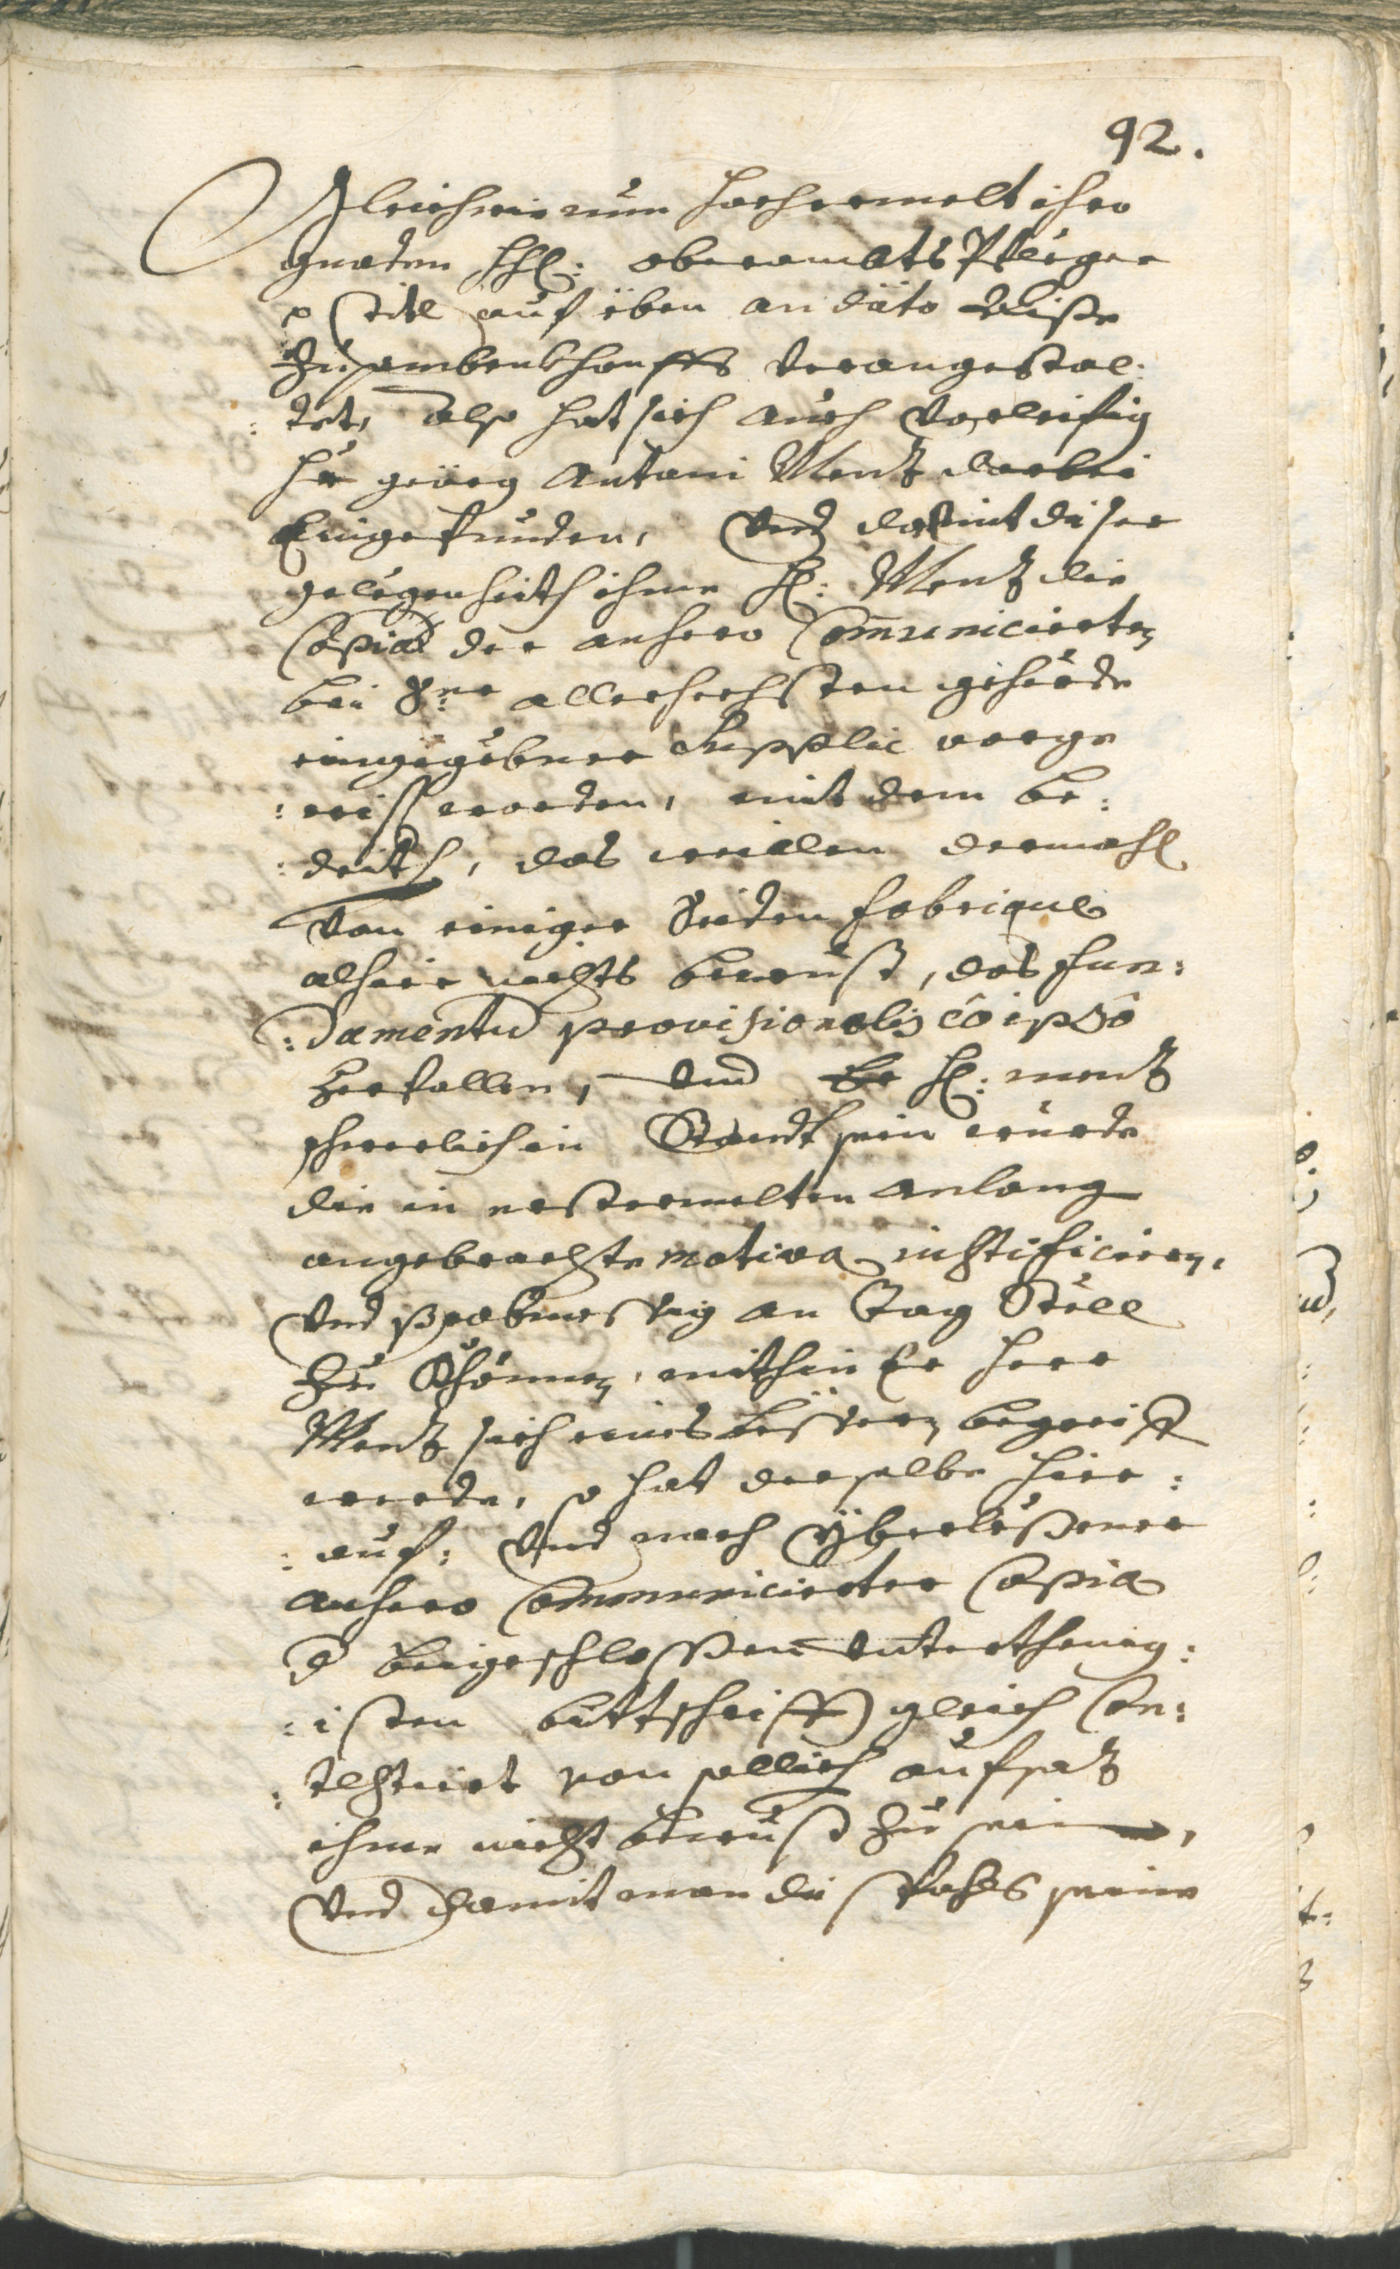 92.
Gleichwie nun hochermelt ihro
gnaden H: oberambts Pfleger
p titl auf eben an dato diße
Zusambenkhonffts verangestal:
:tet, also hat sich auch vorleifig
Hr geörg Antoni Mentz darbei
Eingefunden, Und da mit diser
gelegenheith ihme H: Mentz die
Copia der anhero Com̄unicierten
bei Irer allerhechsten gehörde
eingegebner Supplic vorge
:wiß worden, mit dem be:
:deith, das weillen dermahl
von einiger Seiden fabrique
alhier nichts bewust, das fun:
:damentū provisionalis eô ipsô
Zerfallen, Und Er H: mentz
schwerlich in Standt sein wurde
die in erstermelten anlang
angebrachte motiva iustificieren,
Und probmessig an Tag Stell
Zu Khönnen, mithin Er Herr
Mentz sich eines bessern begreifft
werde, so hat derselbe hier:
:auf: Und nach yberleßener
anhero Communicierter Copia
d beigeschlossen Unterthenig:
:isten bittschrifft gleich Con:
:testiert von sollich aufsatz
ihme nicht bewust Zu sein,
Und damit man die sachs seine